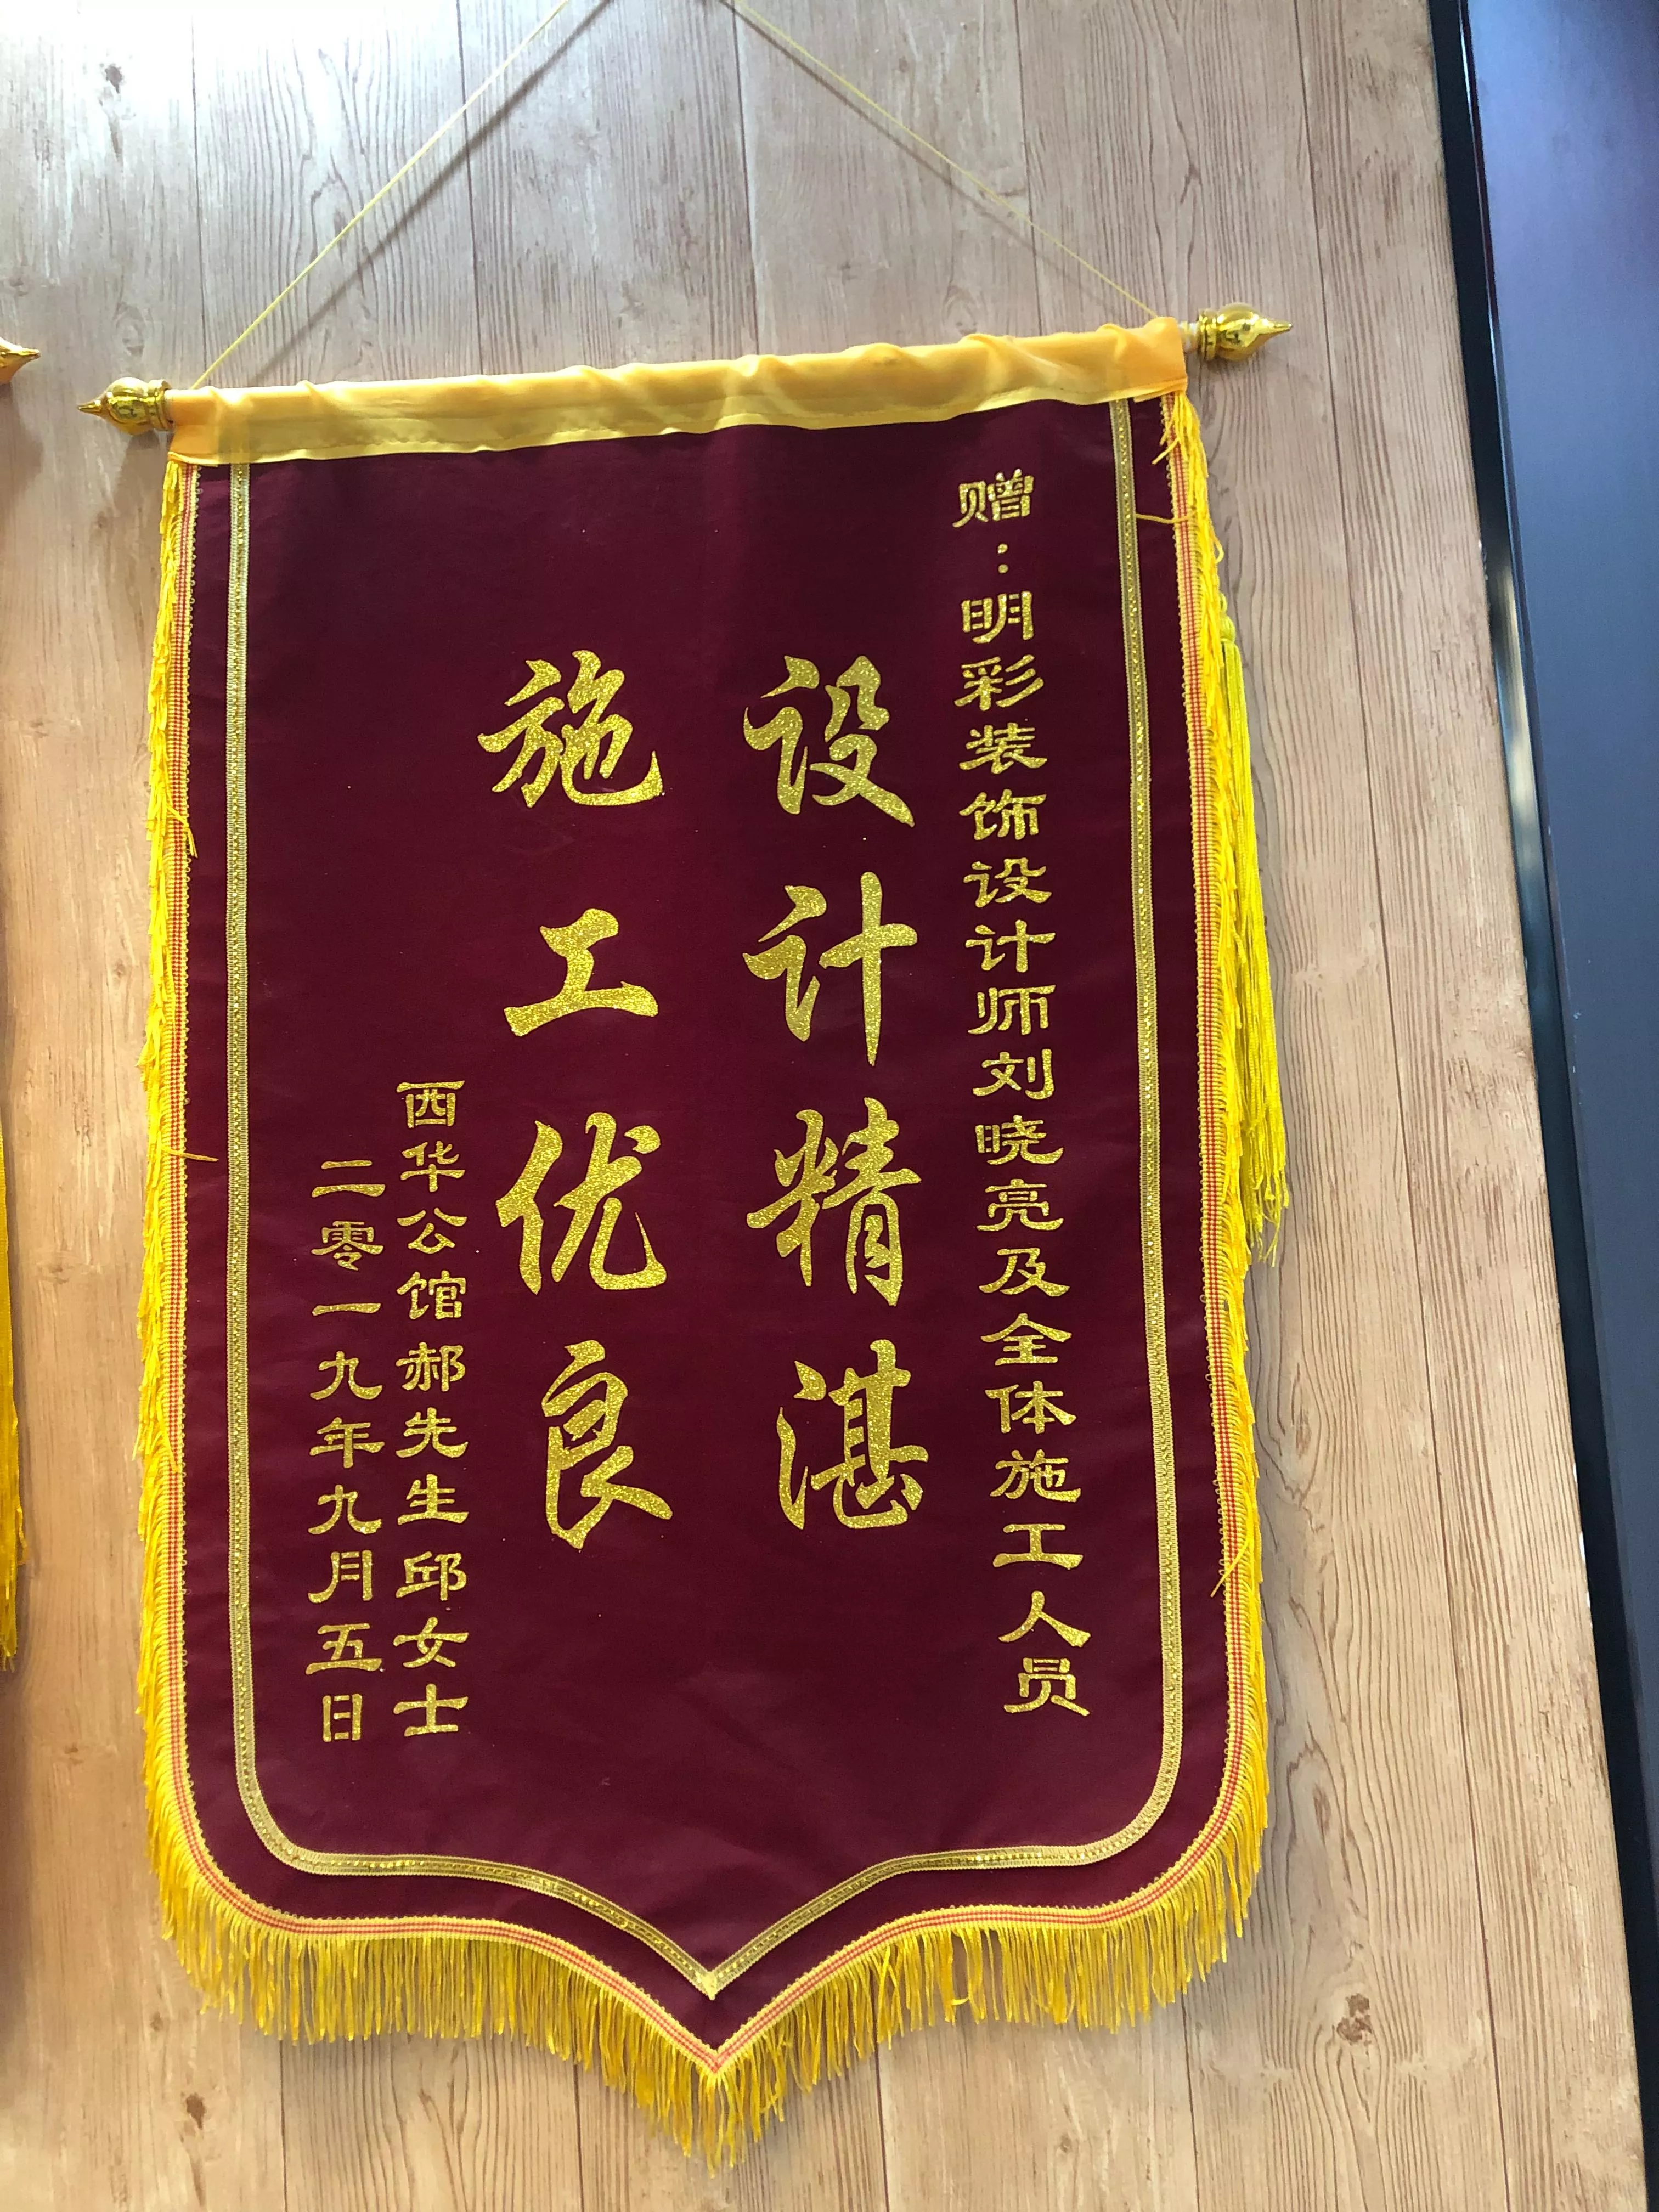 赠：明彩装饰设计师刘晓亮及全体施工人员
设计精湛
施工优良
西华公馆郝先生邱女士
二零一九年九月五日